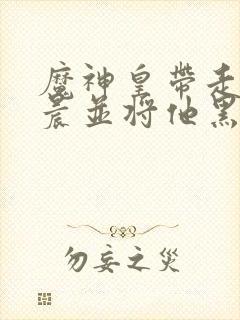 魔神皇帶走
晨並將他黑
勿妄之災